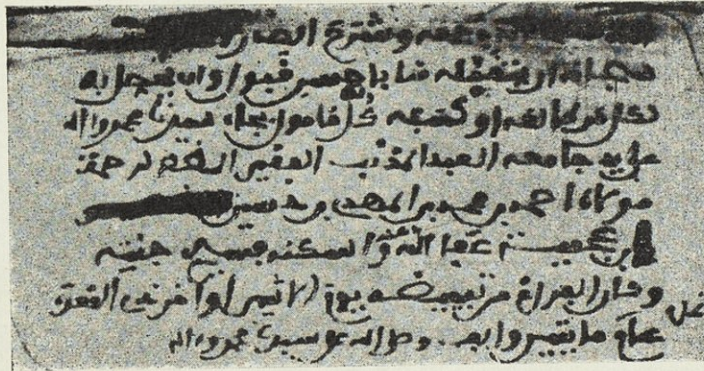 وشرح
ان يتقبله منا باحسن قبول وان ينفع به
كل من طالعه او كتبه كل مامول بجاه سيدنا محمد واله
على يد جامعه العبد المذنب الفقير لرحمة
مولاه احمد بن محمد بن المهدي بن حسين
بن عجيبة واسكنه فسيح جنته
وكان الفراغ من تبييضه يوم الاثنين اواخر ذي القعدة
عام مايتين والف وصلى الله على سيدنا محمد واله